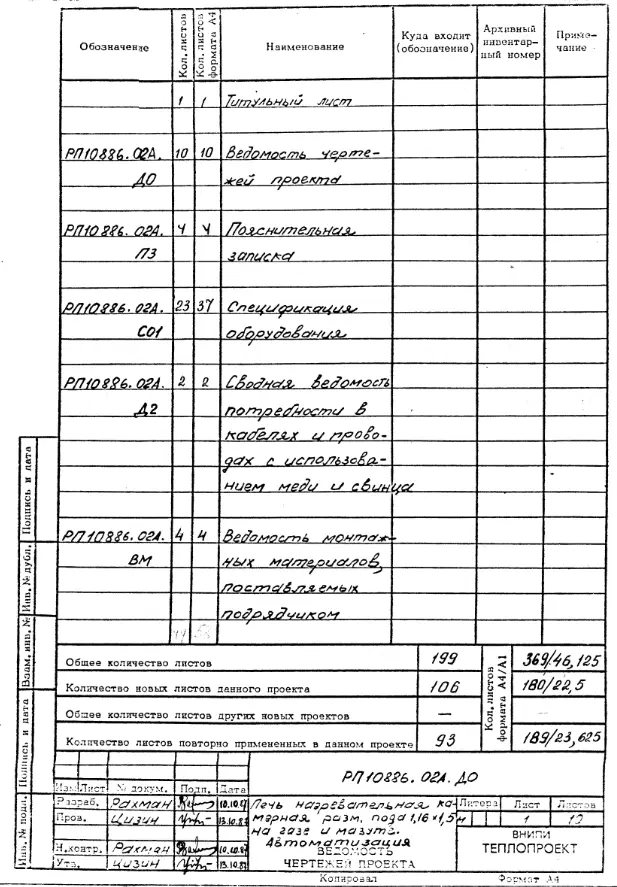 Обозначение Кол. листов Кол. листов формата А4 Наименование Куда входит (обозначение) Архивный инвентар-ный номер Приме-чание
1 1 Титульный лист
РП10886.02А. 10 10 Ведомость черте-
ДО жей проекта
РП10886.02А. 4 4 Пояснительная
ПЗ записка
РП10886.02А. 23 37 Спецификация
СО1 оборудования
РП10886.02А. 2 2 Сводная ведомость
Д2 потребности в
кабелях и прово-
дах с использова-
нием меди и свинца
РП10886.02А. 4 4 Ведомость монтаж-
ВМ ных материалов,
поставляемых
подрядчиком
Общее количество листов 199 Кол. листов формата А4/А1 369/46,125
Количество новых листов данного проекта 106 180/22,5
Общее количество листов других новых проектов — —
Количество листов повторно примененных в данном проекте 93 189/23,625
Подпись и дата
Инв. № дубл.
Взам. инв. №
Подпись и дата
Инв. № подл.
РП10886.02А.ДО
Изм. Лист № докум. Подп. Дата
Разраб. Рахман
Пров. Цизин
Н.контр. Рахман
Утв. Цизин
Печь нагревательная ка-
мерная разм. пода 1,16х1,5м
на газе и мазуте.
Автоматизация
ВЕДОМОСТЬ
ЧЕРТЕЖЕЙ ПРОЕКТА
Литера Лист Листов
1 10
ВНИПИ
ТЕПЛОПРОЕКТ
Копировал Формат А4